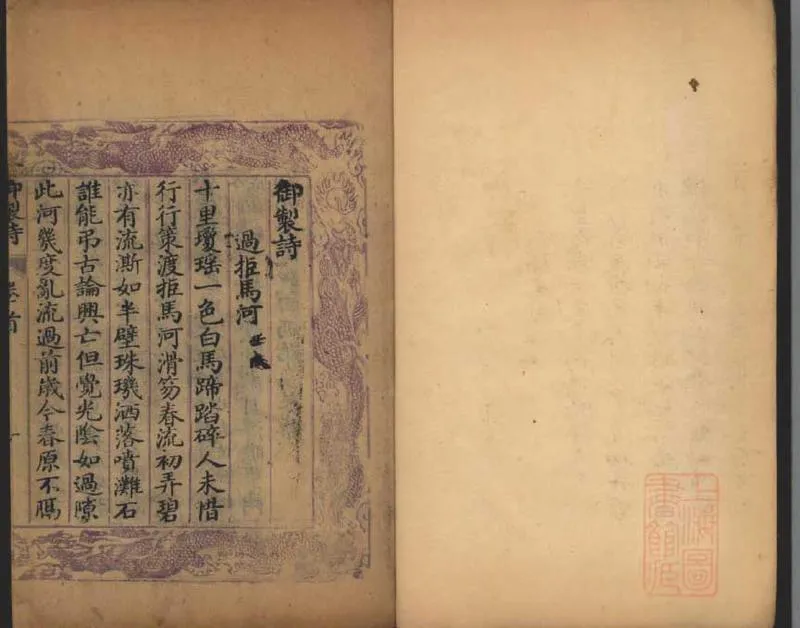 御製詩
過拒馬河
十里瓊瑶一色白馬蹄踏碎人未惜
行行策渡拒馬河滑笏春流初弄碧
亦有流澌如半壁珠璣洒落噴灘石
誰能弔古論興亡但覺光陰如過隙
此河幾度亂流過前歲今春原不隔
御製詩 卷首
上海圖書館藏